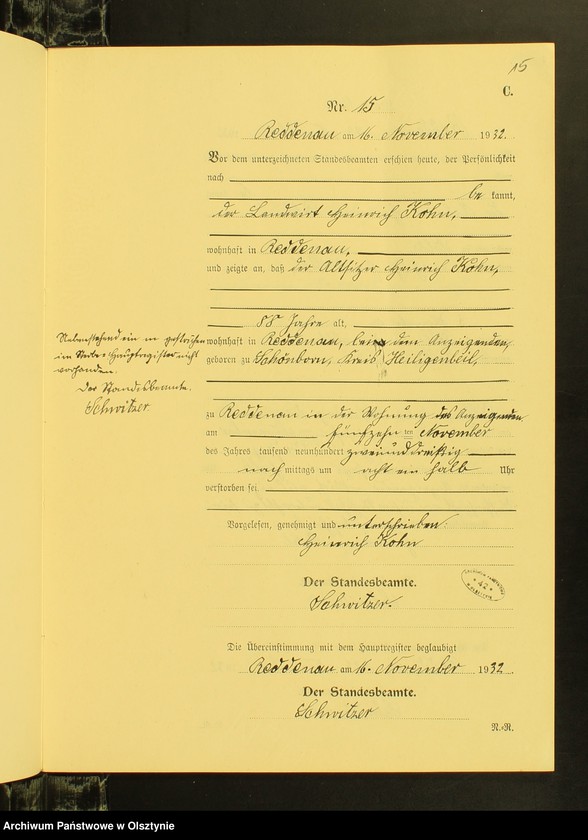 15
C.
Nr. 15
Reddenau am 16. November 1932.
Vor dem unterzeichneten Standesbeamten erschien heute, der Persönlichkeit
nach
be kannt,
der Landwirt Heinrich Kohn,
wohnhaft in Reddenau,
und zeigte an, daß der Altsitzer Heinrich Kohn,
88 Jahre alt,
wohnhaft in Reddenau, bei dem Anzeigenden,
geboren zu Schönborn, Kreis Heiligenbeil,
zu Reddenau in der Wohnung des Anzeigenden
am fünfzehn ten November
des Jahres tausend neunhundert zweiunddreißig
nach mittags um acht ein halb Uhr
verstorben sei.
Vorgelesen, genehmigt und unterschrieben.
Heinrich Kohn
Der Standesbeamte.
Schwitzer.
Die Übereinstimmung mit dem Hauptregister beglaubigt
Reddenau am 16. November 1932.
Der Standesbeamte.
Schwitzer
N.+R.
Nebenstehend ein m gestrichen
im Sterbe Hauptregister nicht
vorhanden.
Der Standesbeamte.
Schwitzer
42
Archiwum Państwowe w Olsztynie